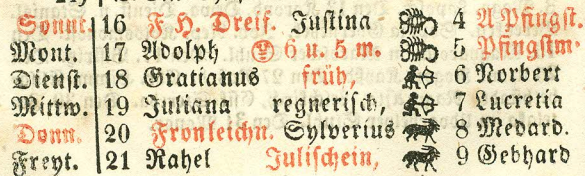 Sonnt. 16 F H. Dreif. Justina 4 A Pfingst.
Mont. 17 Adolph 6 u. 5 m. 5 Pfingstm.
Dienst. 18 Gratianus früh, 6 Norbert
Mittw. 19 Juliana regnerisch, 7 Lucretia
Donn. 20 Fronleichn. Sylverius 8 Medard.
Freyt. 21 Rahel Julischein, 9 Gebhard